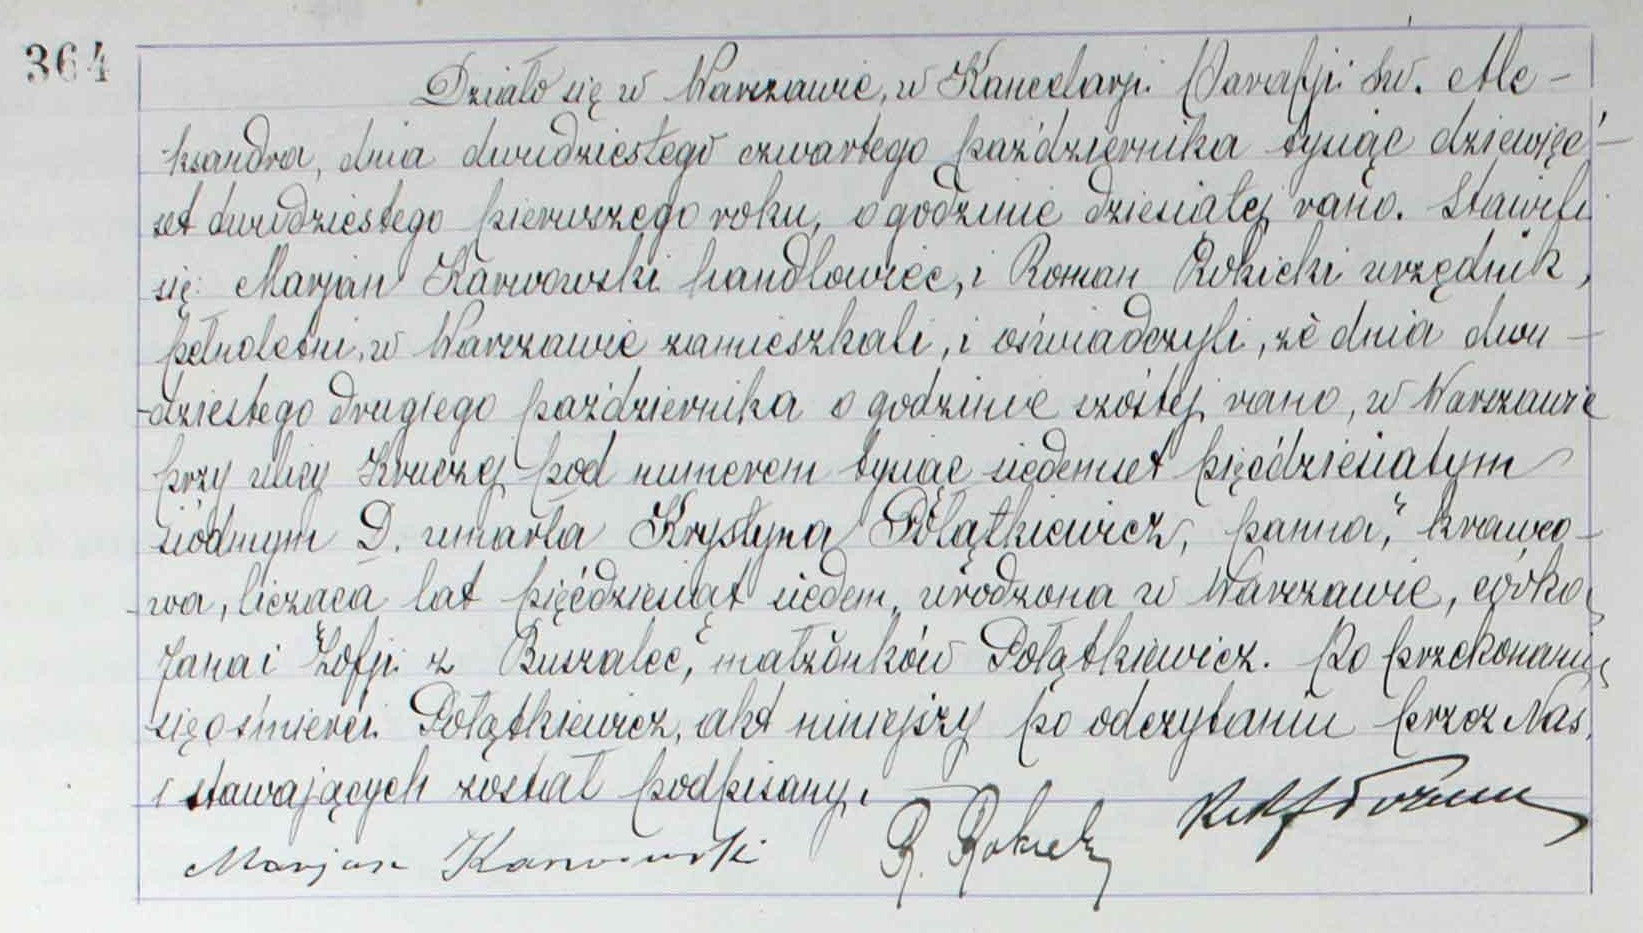 364
Działo się w Warszawie, w Kancelarji Parafji św. Ale-
ksandra, dnia dwudziestego czwartego października tysiąc dziewięć-
set dwudziestego pierwszego roku, o godzinie dziesiątej rano. Stawili
się: Marjan Karwowski handlowiec, i Roman Rokicki urzędnik,
pełnoletni, w Warszawie zamieszkali, i oświadczyli, że dnia dwu-
dziestego drugiego października o godzinie szóstej rano, w Warszawie
przy ulicy Kruczej pod numerem tysiąc siedemset pięćdziesiatym
siódmym D. umarła Krystyna Połątkiewicz, panna, krawco-
wa, licząca lat pięćdziesiąt siedem, urodzona w Warszawie, córka
Jana i Zofji z Buszalec, małżonków Połątkiewicz. Po przekonaniu
się o śmierci Połątkiewicz, akt niniejszy po odczytaniu przez Nas,
i stawających został podpisany.
Marjan Karwowski R. Rokicki